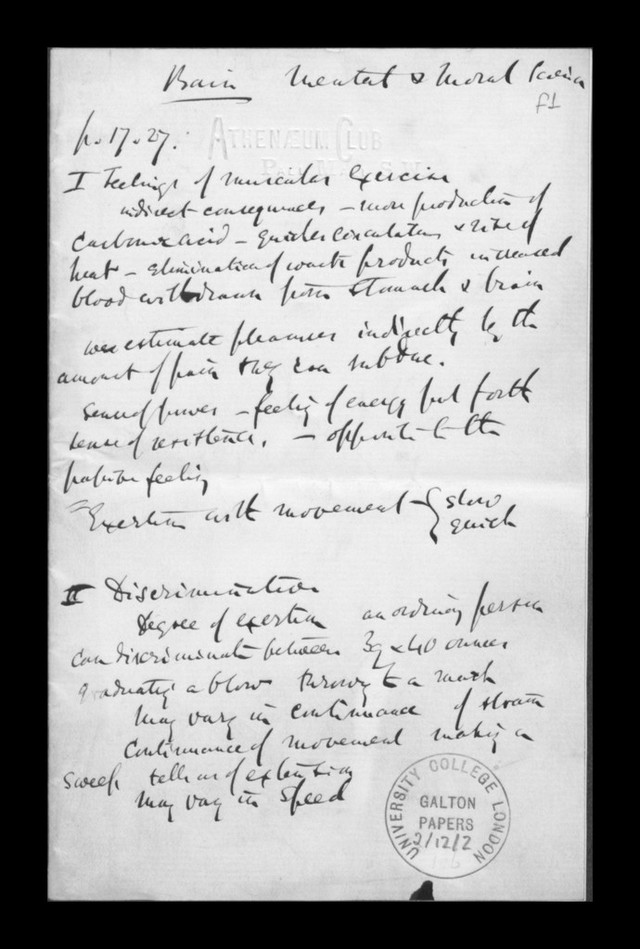 Bain Mental & Moral Science
f1
p. 17. 27.
ATHENÆUM CLUB
PALL MALL S.W.
I Feelings of muscular Exercise
indirect consequences – more production of
Carbonic acid – quicker circulation & rise of
heat – elimination of waste products increased
blood withdrawn from stomach & brain
we estimate pleasures indirectly by the
amount of pain they can subdue.
Sense of power – feeling of energy put forth
sense of resistance. – opposite to the
passive feeling
Exertion with movement – { slow
quick
II Discrimination
Degree of exertion an ordinary person
can discriminate between 39 & 40 ounces
graduating a blow throwing to a mark
May vary in continuance of strain
Continuance of movement making a
sweep tells us of extension
May vary in Speed
UNIVERSITY COLLEGE LONDON
GALTON
PAPERS
2/12/2